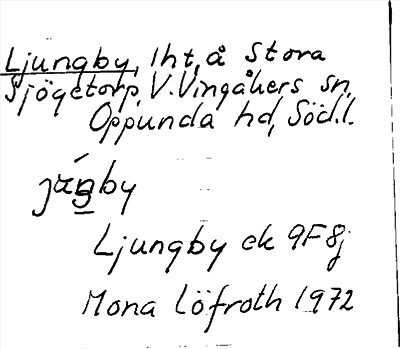 Ljungby, lht, å Stora
Sjögetorp, V. Vingåkers sn,
Oppunda hd, Söd.l.
Ljungby ek 9F8j
Mona Löfroth 1972